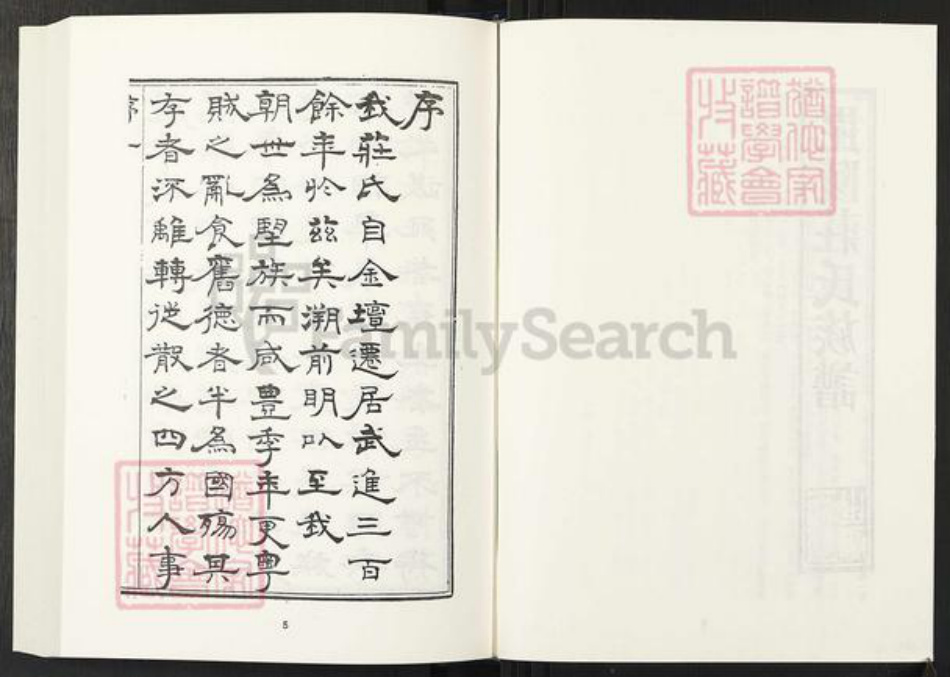 序
我莊氏自金壇遷居武進三百
餘年於茲矣溯前明以至我
朝世為望族而咸豊季年更粵
賊之亂食舊德者半為國殤其
存者流離轉徙散之四方人事
序 一
5
猶他家
譜學會
收藏
猶他家
譜學會
收藏
FamilySearch
莊氏族譜